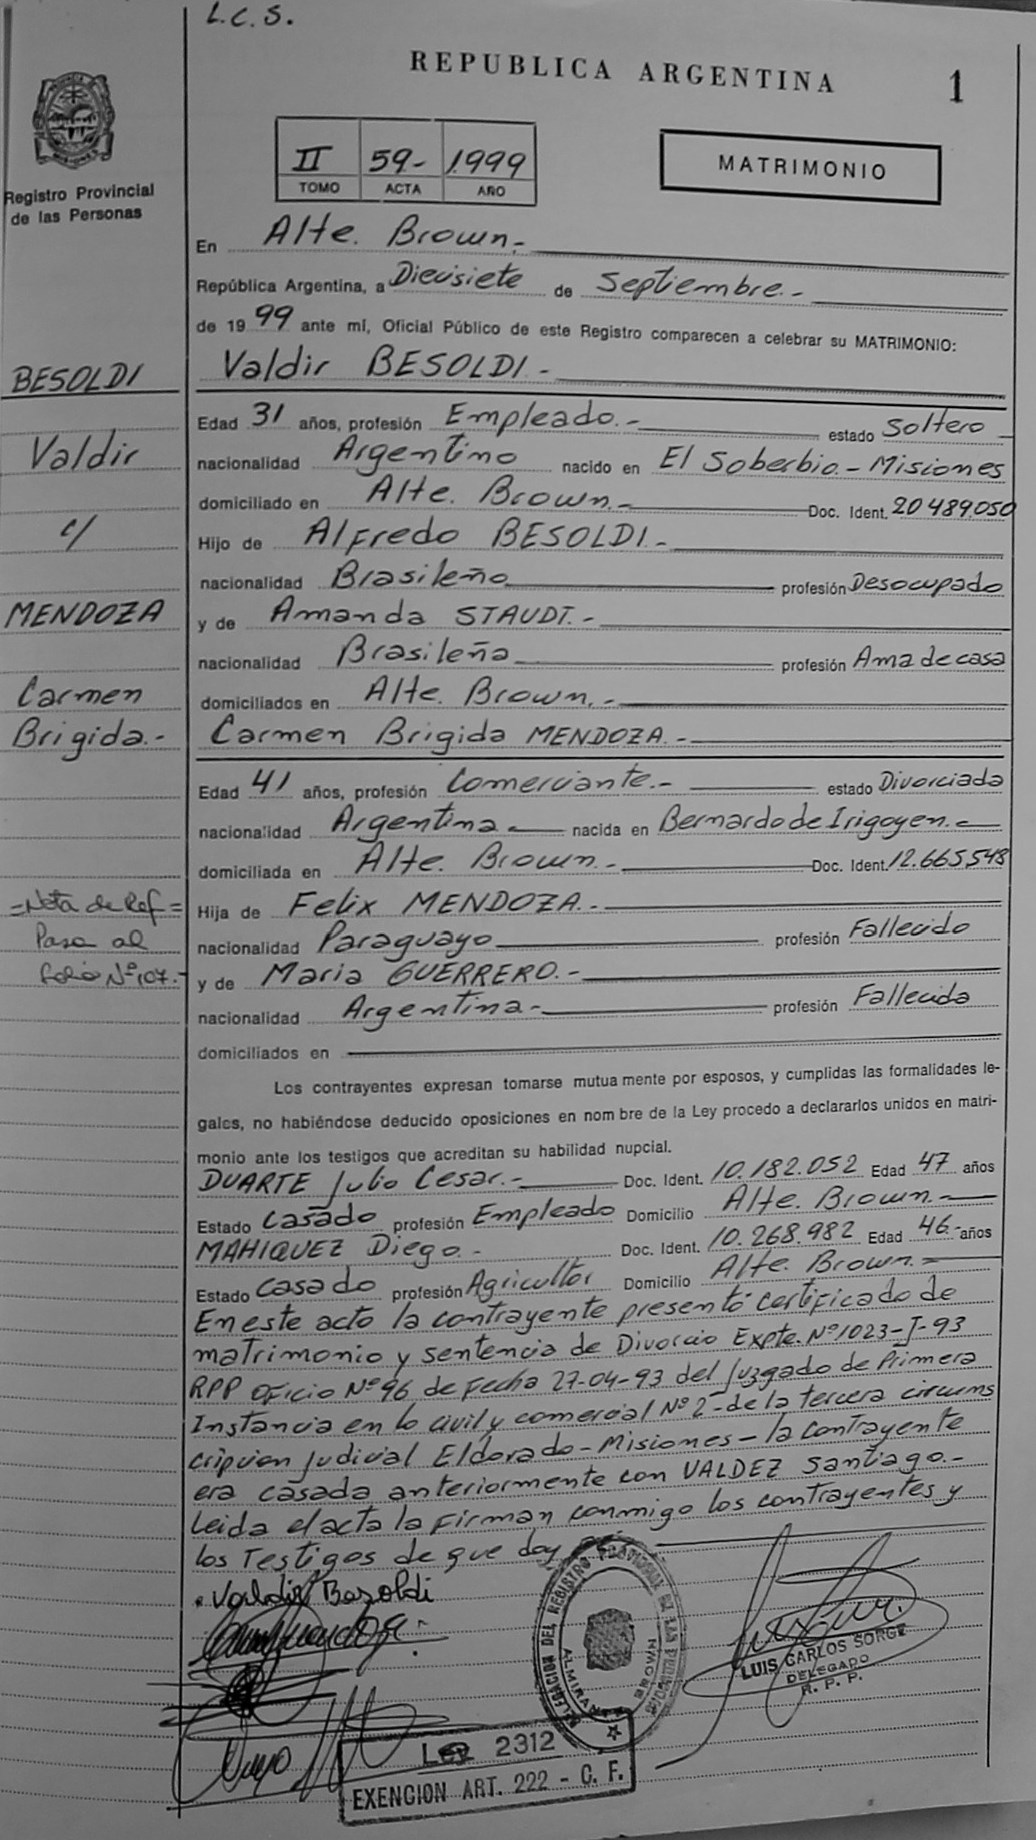 L.C.S.
REPUBLICA ARGENTINA
1
II 59- 1999
TOMO ACTA AÑO
MATRIMONIO
Registro Provincial
de las Personas
En Alte. Brown.-
República Argentina, a Diecisiete de Septiembre.-
de 19 99 ante mí, Oficial Público de este Registro comparecen a celebrar su MATRIMONIO:
BESOLDI
Valdir
c/
MENDOZA
Carmen
Brigida.-
=Nota de Ref=
Pasa al
folio Nº107.-
Valdir BESOLDI.-
Edad 31 años, profesión Empleado.- estado Soltero
nacionalidad Argentino nacido en El Soberbio.- Misiones
domiciliado en Alte. Brown.- Doc. Ident. 20489.050
Hijo de Alfredo BESOLDI.-
nacionalidad Brasileño profesión Desocupado
y de Amanda STAUDT.-
nacionalidad Brasileña profesión Ama de casa
domiciliados en Alte. Brown.-
Carmen Brigida MENDOZA.-
Edad 41 años, profesión Comerciante.- estado Divorciada
nacionalidad Argentina nacida en Bernardo de Irigoyen.-
domiciliada en Alte. Brown.- Doc. Ident. 12.665.548
Hija de Felix MENDOZA.-
nacionalidad Paraguayo profesión Fallecido
y de Maria GUERRERO.-
nacionalidad Argentina.- profesión Fallecida
domiciliados en
Los contrayentes expresan tomarse mutua mente por esposos, y cumplidas las formalidades le-
gales, no habiéndose deducido oposiciones en nom bre de la Ley procedo a declararlos unidos en matri-
monio ante los testigos que acreditan su habilidad nupcial.
DUARTE Julio Cesar.- Doc. Ident. 10.182.052 Edad 47 años
Estado Casado profesión Empleado Domicilio Alte. Brown.-
MAHIQUEZ Diego.- Doc. Ident. 10.268.982 Edad 46.- años
Estado Casado profesión Agricultor Domicilio Alte. Brown.-
En este acto la contrayente presentó certificado de
matrimonio y sentencia de Divorcio Expte. Nº1023-J-93
RPP oficio Nº96 de fecha 27-04-93 del Juzgado de Primera
Instancia en lo civil y comercial Nº2-de la tercera circuns
cripcion Judicial Eldorado-Misiones-la contrayente
era casada anteriormente con VALDEZ Santiago.-
Leida el acta la firman conmigo los contrayentes y
los Testigos de que doy
Valdir Besoldi
DELEGACION DEL REGISTRO PROVINCIAL DE LAS PERSONAS
ALMIRANTE BROWN
LUIS CARLOS SORGE
DELEGADO
R. P. P.
Ley 2312
EXENCION ART. 222 - C. F.